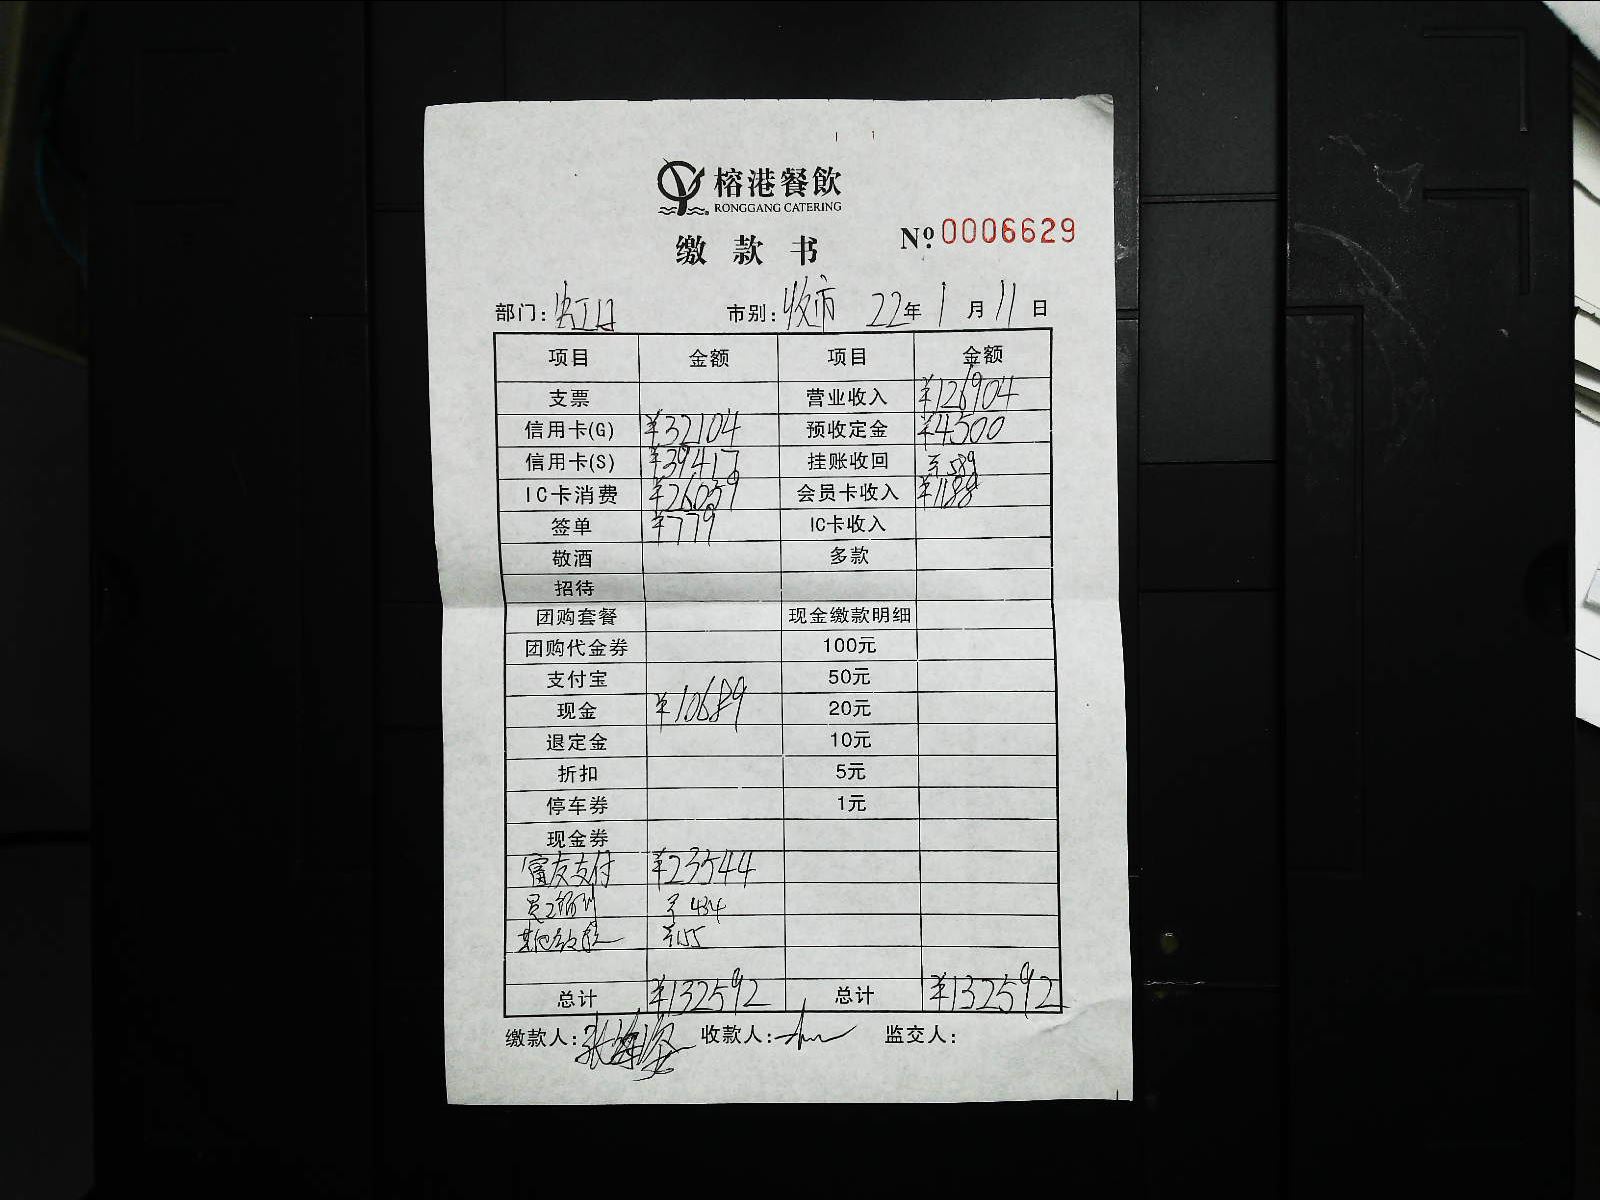 榕港餐飲
RONGGANG CATERING
缴款书
Nº 0006629
部门: 虹口 市别: 收市 22年 1月 11日
项目 金额 项目 金额
支票 营业收入 ¥126904
信用卡(G) ¥32104 预收定金 ¥4500
信用卡(S) ¥39417 挂账收回 ¥589
IC卡消费 ¥26059 会员卡收入 ¥1188
签单 ¥779 IC卡收入
敬酒 多款
招待
团购套餐 现金缴款明细
团购代金券 100元
支付宝 50元
现金 ¥10689 20元
退定金 10元
折扣 5元
停车券 1元
现金券
富友支付 ¥23544
¥434
其他 ¥155
总计 ¥132592 总计 ¥132592
缴款人: 张 收款人: 监交人: